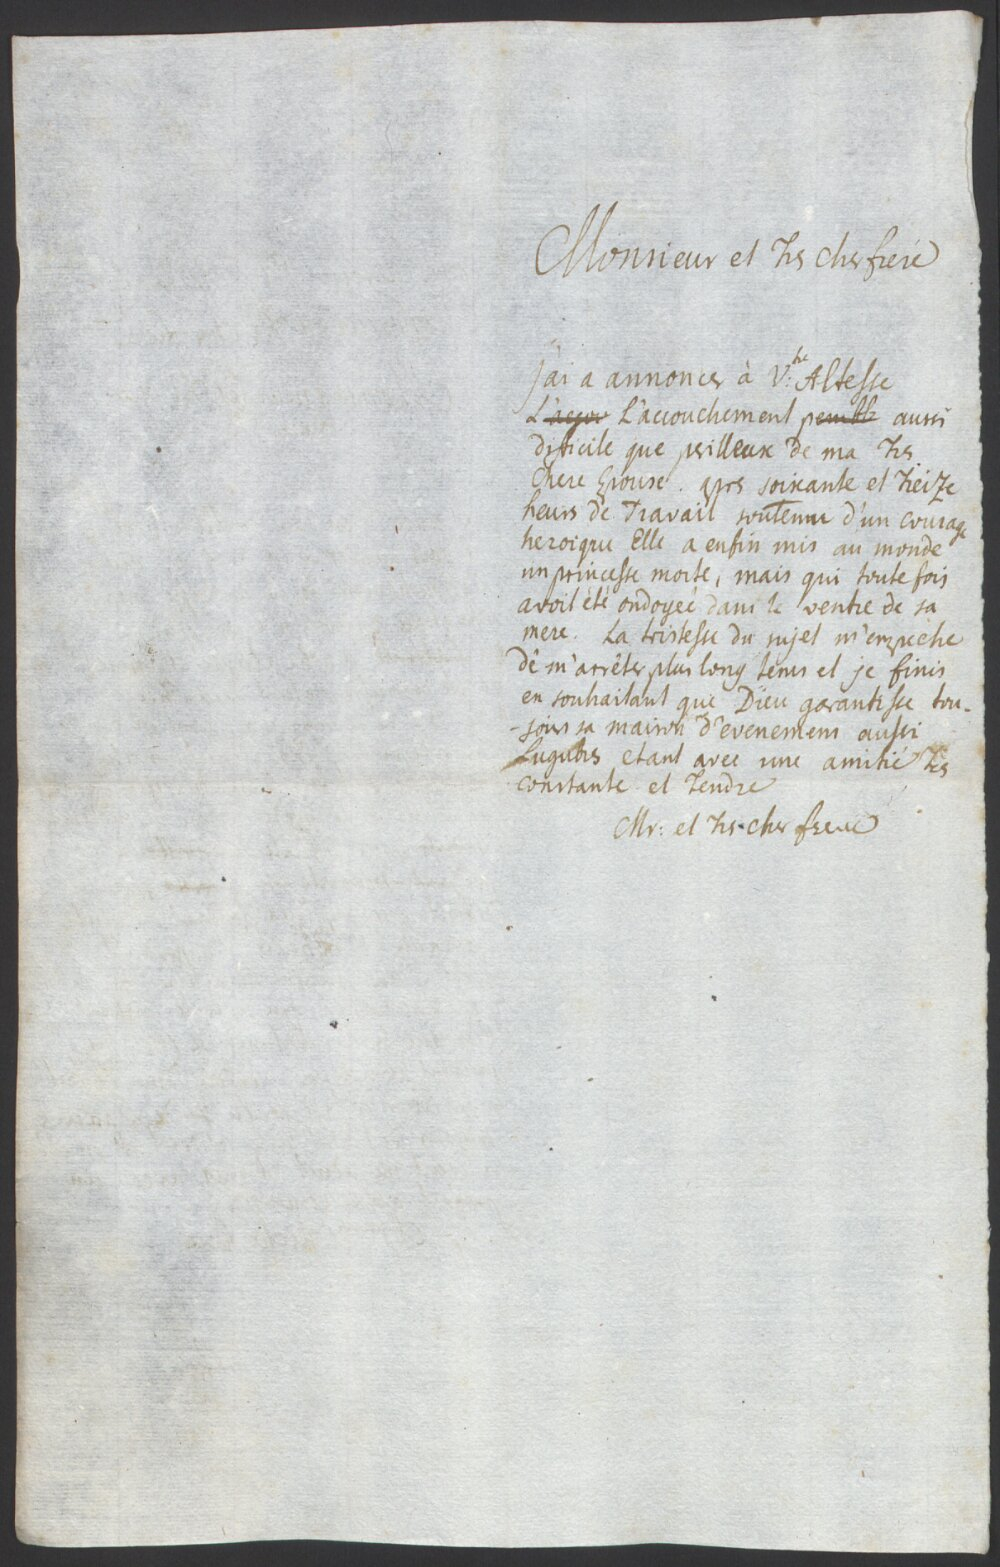 Monsieur et tres cher frere
J'ai a annoncer à V:tre Altesse
L'accou L'accouchement penible aussi
difficile que perilleux de ma tres
chere Epouse. apres soixante et treize
heurs de Travail soutenu d'un courage
heroique Elle a enfin mis au monde
un princesse morte, mais qui toute fois
avoit été ondoyeé dans le ventre de sa
mere. La tristesse du sujet m'empeche
dê m'arrêter plus long tems et je finis
en souhaitant que Dieu garantisse tou-
-jours sa maison d'evenemens aussi
Lugubres etant avec une amitié tres
constante et tendre
Mr: et tres cher frere